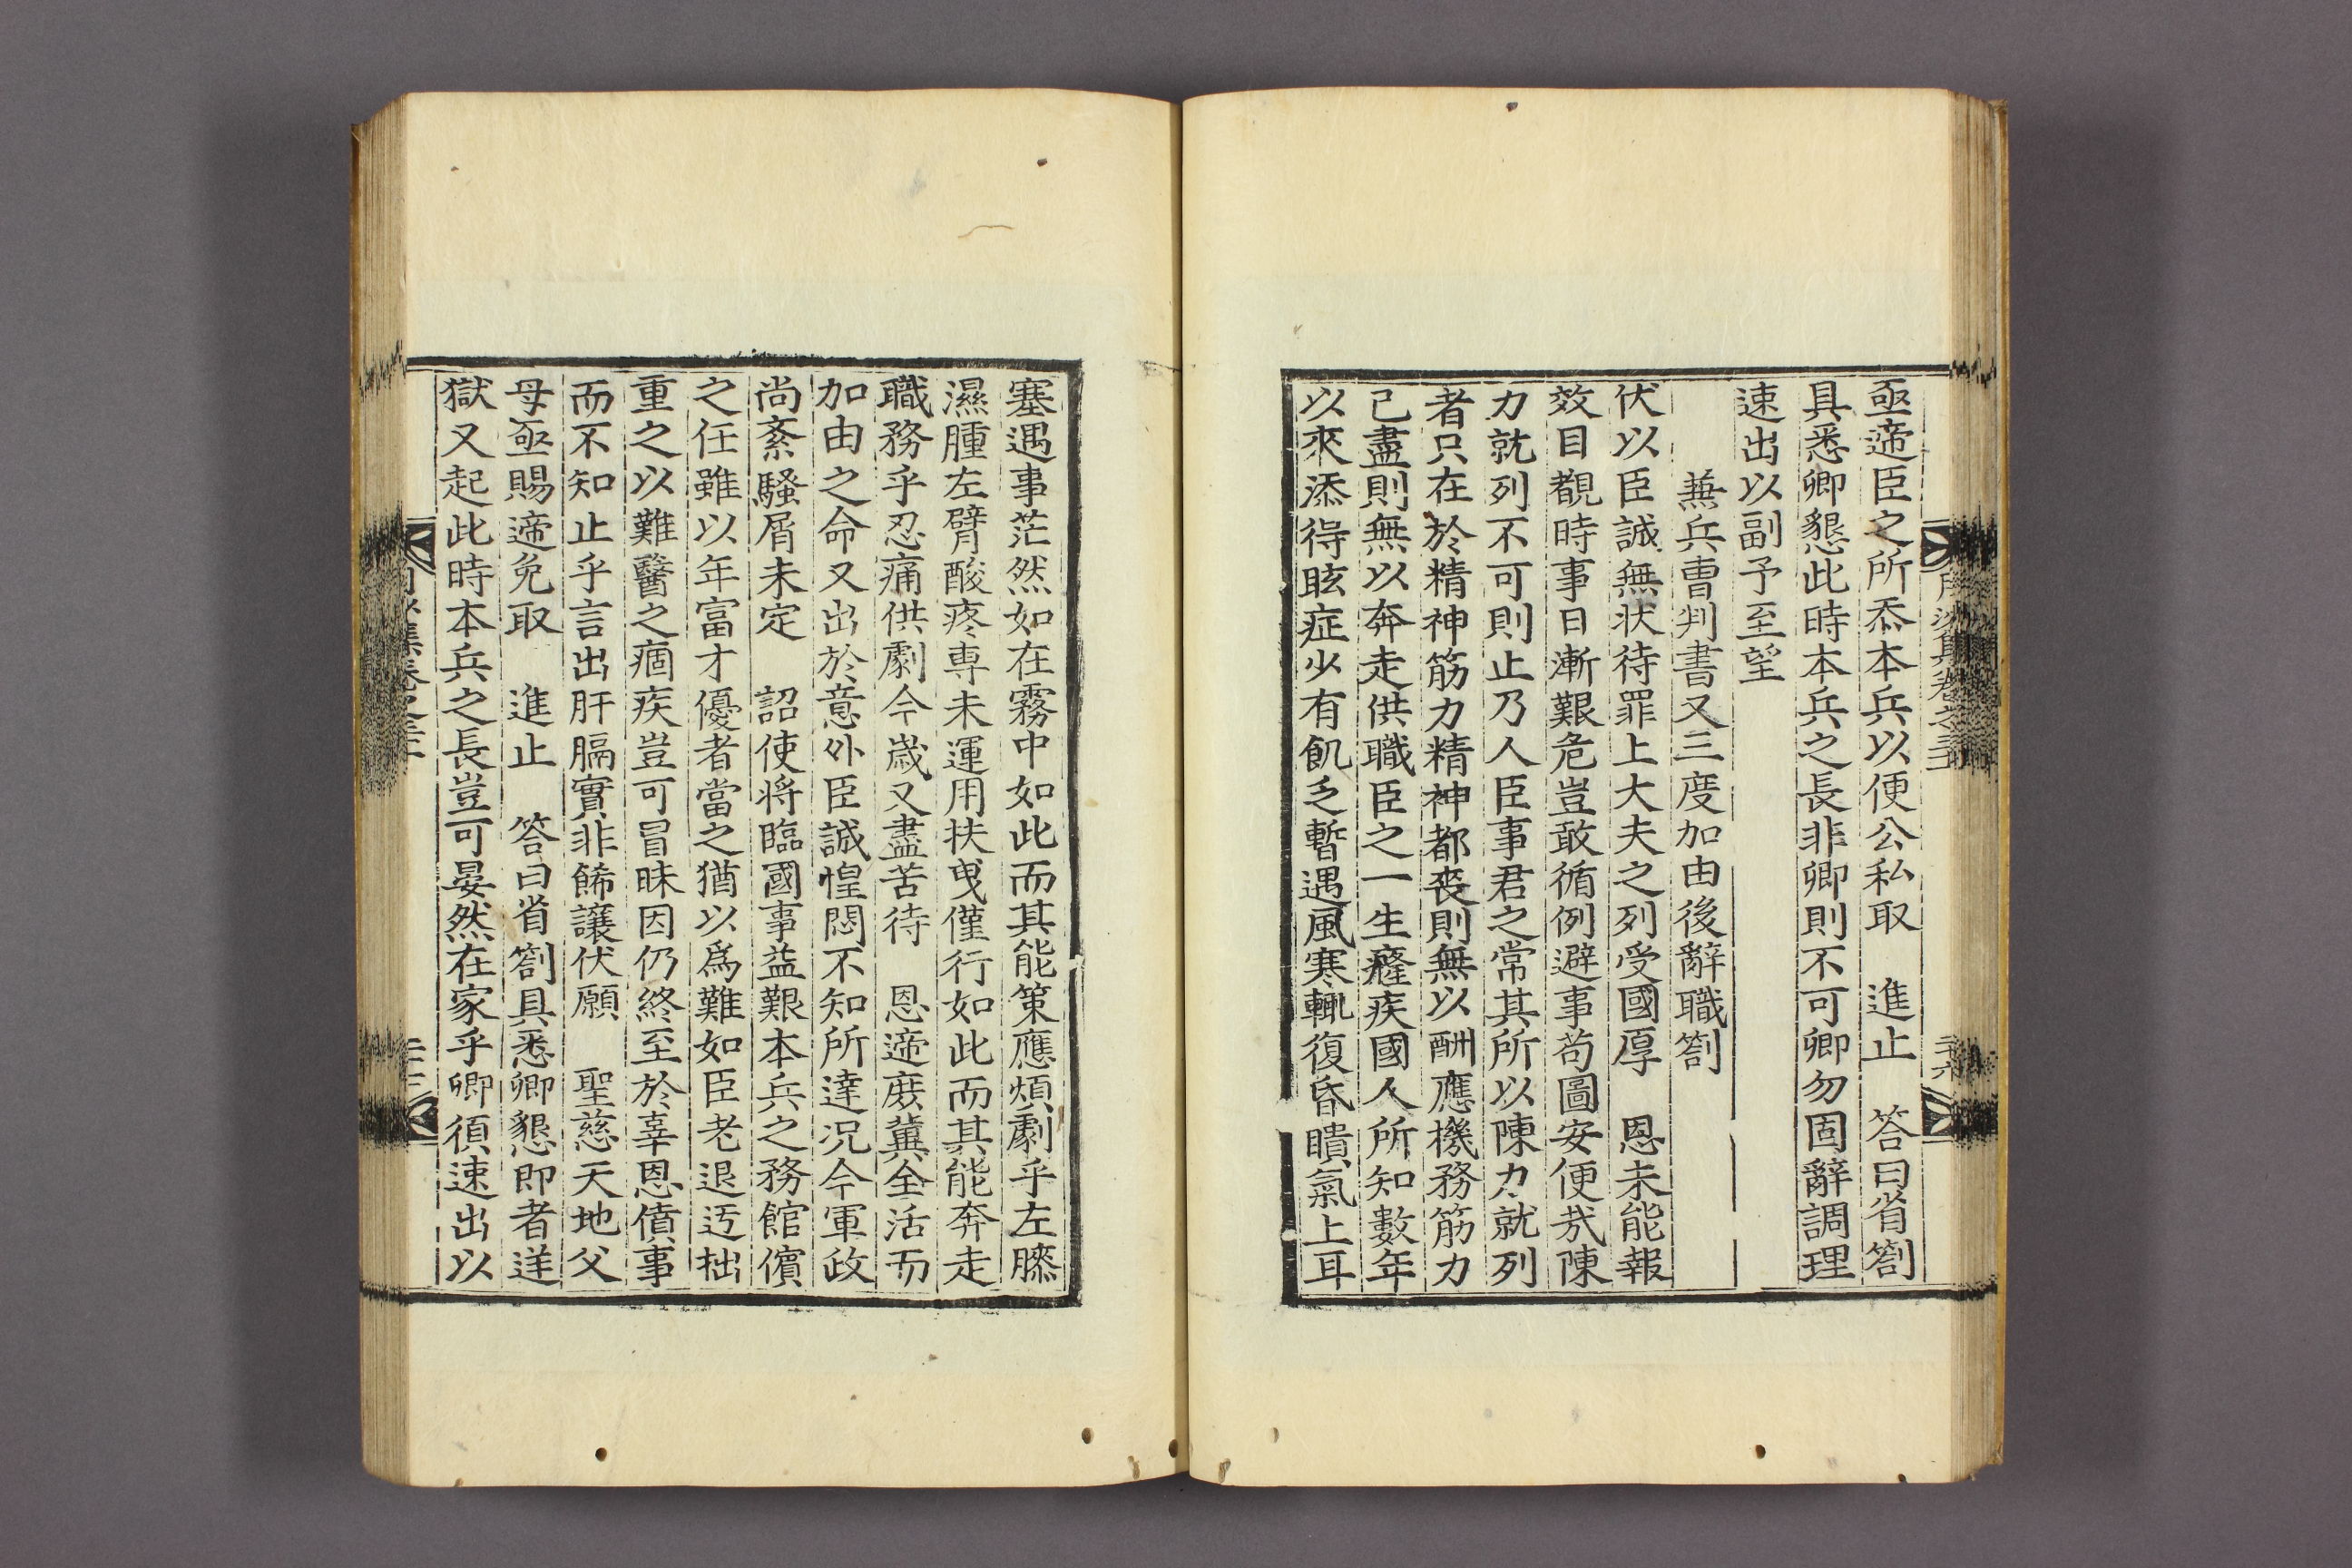 亟遞臣之所忝本兵以便公私取　進止　答曰省劄
具悉卿懇此時本兵之長非卿則不可卿勿固辭調理
速出以副予至望
兼兵曹判書又三度加由後辭職劄
伏以臣誠無狀待罪上大夫之列受國厚　恩未能報
效目覩時事日漸艱危豈敢循例避事苟圖安便哉陳
力就列不可則止乃人臣事君之常其所以陳力就列
者只在於精神筋力精神都喪則無以酬應機務筋力
已盡則無以奔走供職臣之一生癃疾國人所知數年
以來添得眩症少有飢乏暫遇風寒輒復昏瞶氣上耳
塞遇事茫然如在霧中如此而其能策應煩劇乎左膝
濕腫左臂酸疼專未運用扶曳僅行如此而其能奔走
職務乎忍痛供劇今歲又盡苦待　恩遞庶冀全活而
加由之命又出於意外臣誠惶悶不知所達况今軍政
尚紊騷屑未定　詔使將臨國事益艱本兵之務館儐
之任雖以年富才優者當之猶以爲難如臣老退迃拙
重之以難醫之痼疾豈可冒昧因仍終至於辜恩僨事
而不知止乎言出肝膈實非餙讓伏願　聖慈天地父
母亟賜遞免取　進止　答曰省劄具悉卿懇即者逆
獄又起此時本兵之長豈可晏然在家乎卿須速出以